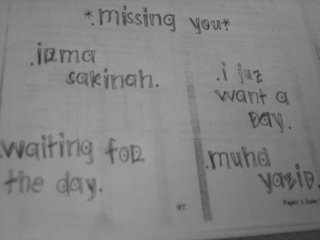 *.missing you*
.iRma
sakinah.
.i juz
want a
Day.
.waiting foR
the day.
.muhd
yaziD.
97
Paper 1 June